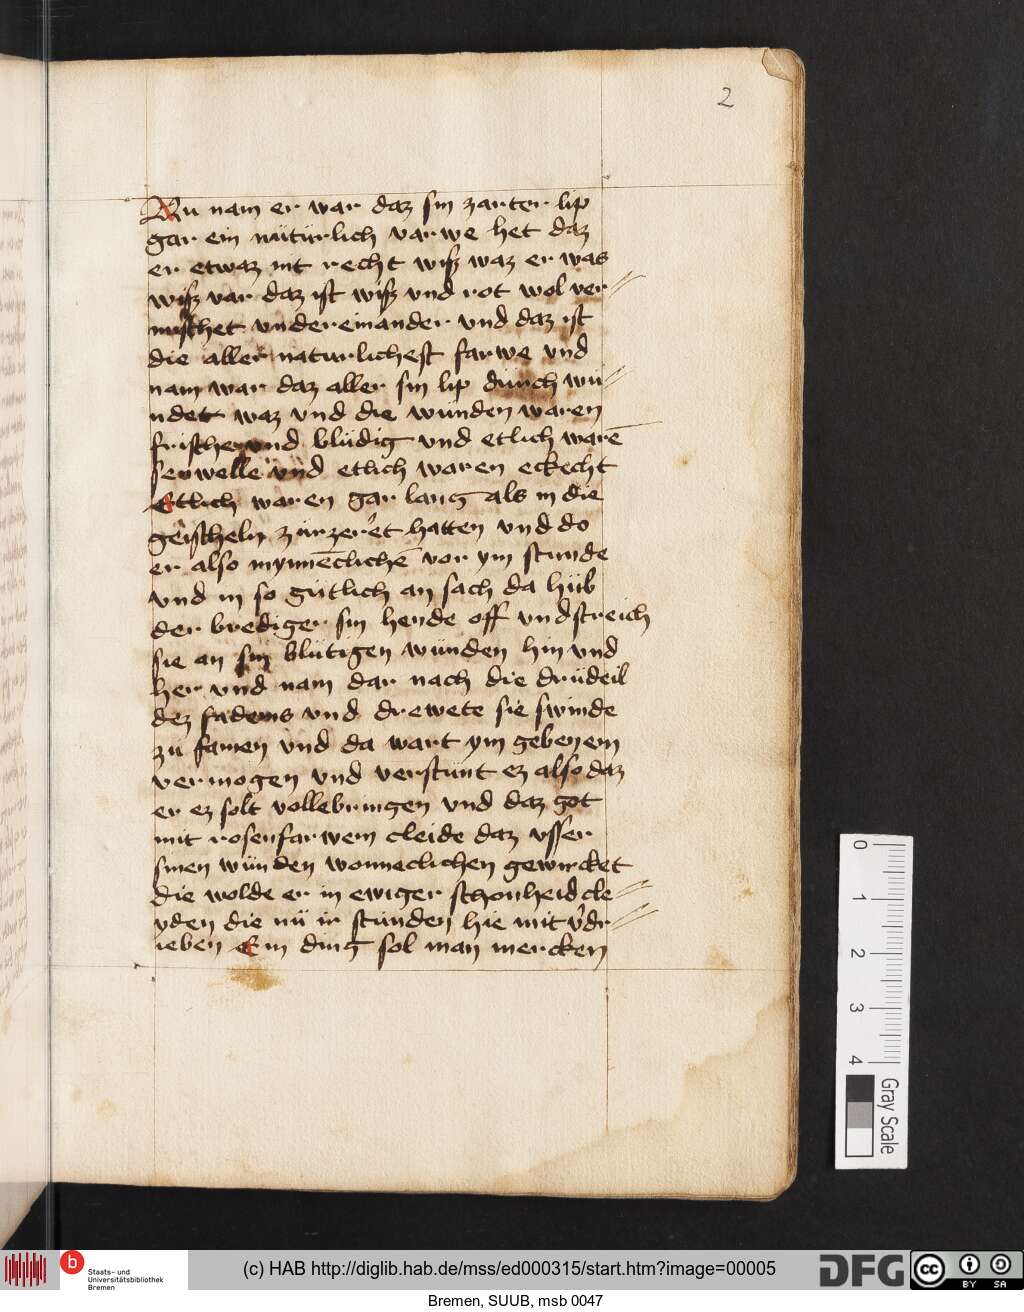 2
Nu nam er war daz sin zarter lip
gar ein nütürlich varwe het daz
er etwaz nit recht wiß waz er was
wiß var daz ist wiß vnd rot wol ver⸗
mischet vndereinander vnd daz ist
die aller naturlichest farwe vnd
nam war daz aller sin lip durch wu⸗
ndet waz vnd die wunden waren
frische vnd blüdig vnd etlich warē
senwelle vnd etlich waren eckecht
Etlich waren gar lang als in die
geischeln zurzer't hatten vnd do
er also mynnēclichē vor ym stunde
vnd in so gütlich an sach da hüb
der brediger sin hende off vnd streich
sie an sin blütigen wunden hin vnd
her vnd nam dar nach die drüdeil
dez fadems vnd drewete sie swinde
zu samen vnd da wart ym geben em
vermogen vnd verstunt ez also daz
er ez solt vollebringen vnd daz got
mit rosenfarwem cleide daz vsser
sinen wunden wonneclichen gewircket
die wolde er in ewiger schonheid cle⸗
yden die nü ir stunden hie mit v'dr⸗
ieben Ein ding sol man mercken
0
1
2
3
4
Gray Scale
b
Staats- und
Universitätsbibliothek
Bremen
(c) HAB http://diglib.hab.de/mss/ed000315/start.htm?image=00005
DFG
cc
BY SA
Bremen, SUUB, msb 0047